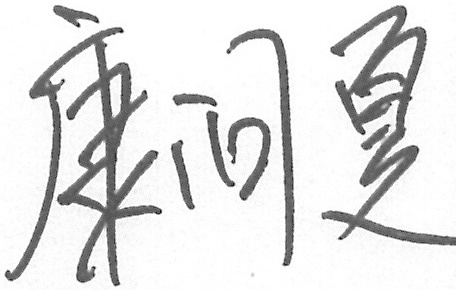 康问夏